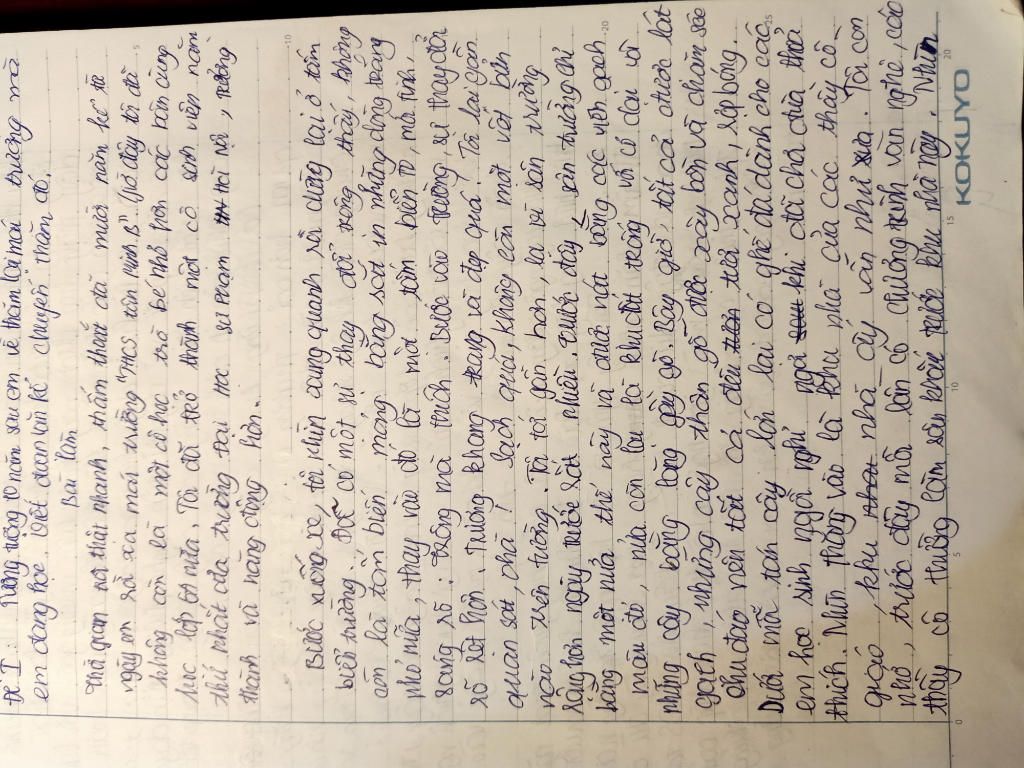 Đề I: Tưởng tượng 10 năm sau em về thăm lại mái trường mà
em đang học. Viết đoạn văn kể chuyến thăm đó.
Bài làm
Thời gian nơi thật nhanh, thấm thoát đã mười năm kể từ
ngày em rời xa mái trường "THCS tân minh B". Giờ đây tôi đã
không còn là một cô học trò bé nhỏ bên các bạn cùng
học lớp 6A nữa, Tôi đã trở thành một cô sinh viên năm
thứ nhất của trường Đại học sư Phạm Hà Nội, trưởng
thành và năng động hơn.
Bước xuống xe, tôi nhìn xung quanh rồi dừng lại ở tấm
biển trường. Đã có một sự thay đổi trông thấy. không
còn là tấm biển mỏng bằng sắt in những dòng trang
nhỏ nữa, thay vào đó là một tấm biển to, mới tinh,
sang rõ: trông mà thích. Bước vào trường, sự thay đổi
rõ rệt hơn. Trường khang trang và đẹp quá. Tôi lại gần
quan sát, chà! sạch quá, không còn một vết bẩn
nào trên tường. Tôi tới gần hơn lại với sân trường
rộng hơn ngày trước rất nhiều. trước đây, sân trường chỉ
bằng một nửa thế này và phải nát bằng các viên gạch
màu đỏ, nửa còn lại là khu đất trống và có cỏ dại và
những cây bàng bằng gầy gò. Bây giờ, tất cả được lát
gạch, những cây thân gỗ được xây bồn và chăm sóc
chu đáo nên tất cả đều tươi xanh, rợp bóng.
Dưới mỗi tán cây lớn lại có ghế đá dành cho các
em học sinh ngồi nghỉ ngơi khi đùa chơi thỏa
thích. Nhìn thẳng vào là khu nhà của các thầy cô
giáo, khu nhà ấy vẫn như xưa. Tôi còn
nhớ, trước đây mỗi lần có chương trình văn nghệ, các
thầy cô thường làm sân khấu trước khu nhà này. Nhìn
KOKUYO
5
10
15
20
25
0
5
10
15
20